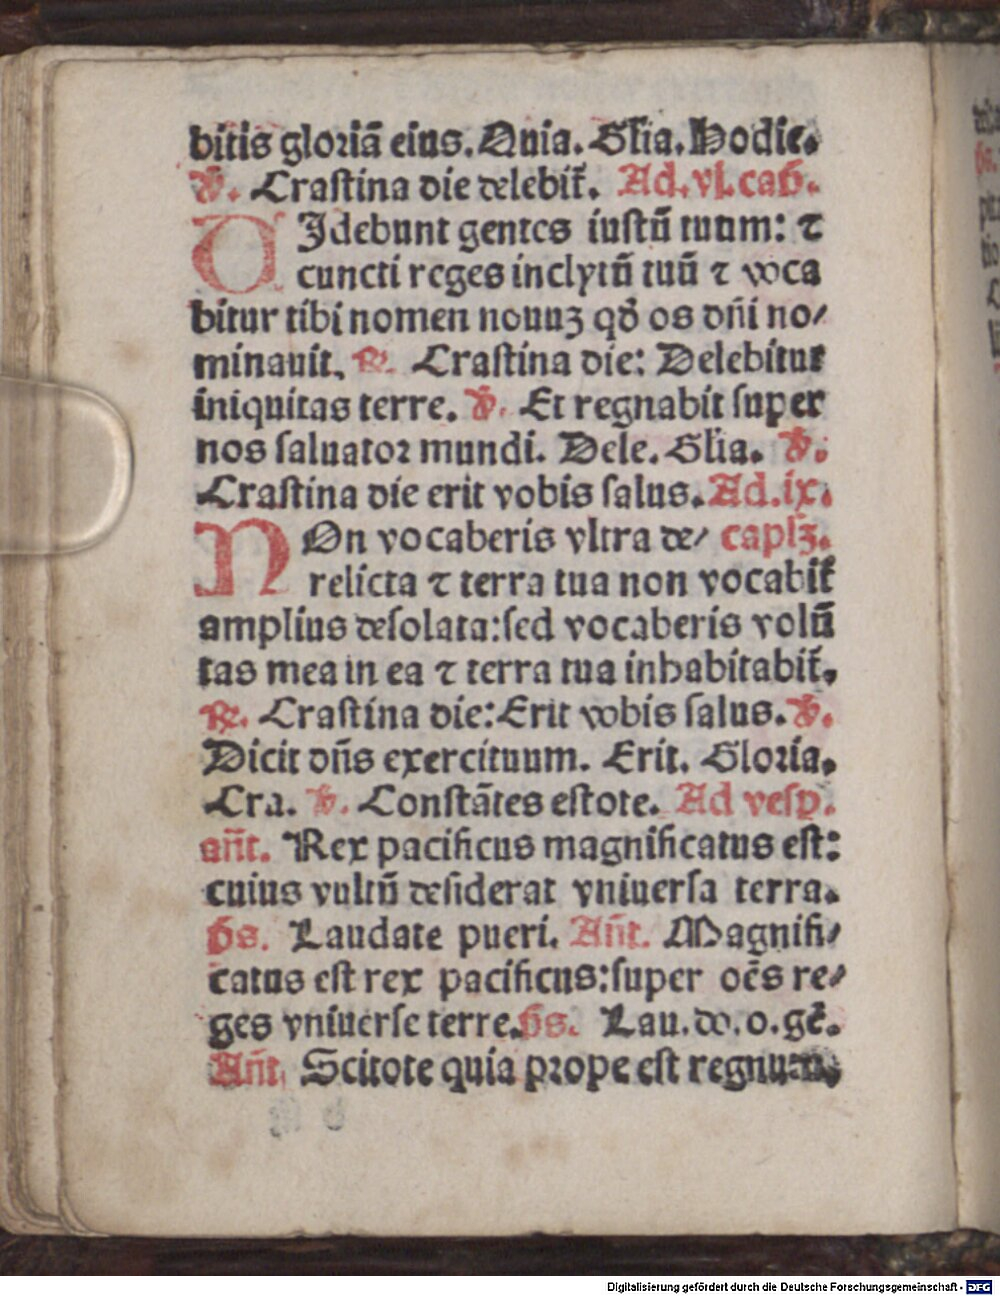 bitis gloriã eius. Quia. Gl̃ia. Hodie.
℣. Crastina die delebit̃. Ad. vi. cap̃.
VIdebunt gentes iustũ tuum: ⁊
cuncti reges inclytũ tuũ ⁊ voca
bitur tibi nomen nouuꝫ qđ os dñi no/
minauit. ℟. Crastina die: Delebitur
iniquitas terre. ℣. Et regnabit super
nos saluator mundi. Dele. Gl̃ia. ℣.
Crastina die erit vobis salus. Ad. ix.
NOn vocaberis vltra de/ capl̃ꝫ.
relicta ⁊ terra tua non vocabit̃
amplius desolata: sed vocaberis volũ
tas mea in ea ⁊ terra tua inhabitabit̃.
℟. Crastina die: Erit vobis salus. ℣.
Dicit dñs exercituum. Erit. Gloria.
Cra. ℣. Constãtes estote. Ad vesp.
añt. Rex pacificus magnificatus est:
cuius vultũ desiderat vniuersa terra.
ps. Laudate pueri. Añt. Magnifi/
catus est rex pacificus: super oẽs re/
ges vniuerse terre. ps. Lau. do. o. gẽ.
Añt. Scitote quia prope est regnum
Digitalisierung gefördert durch die Deutsche Forschungsgemeinschaft - DFG